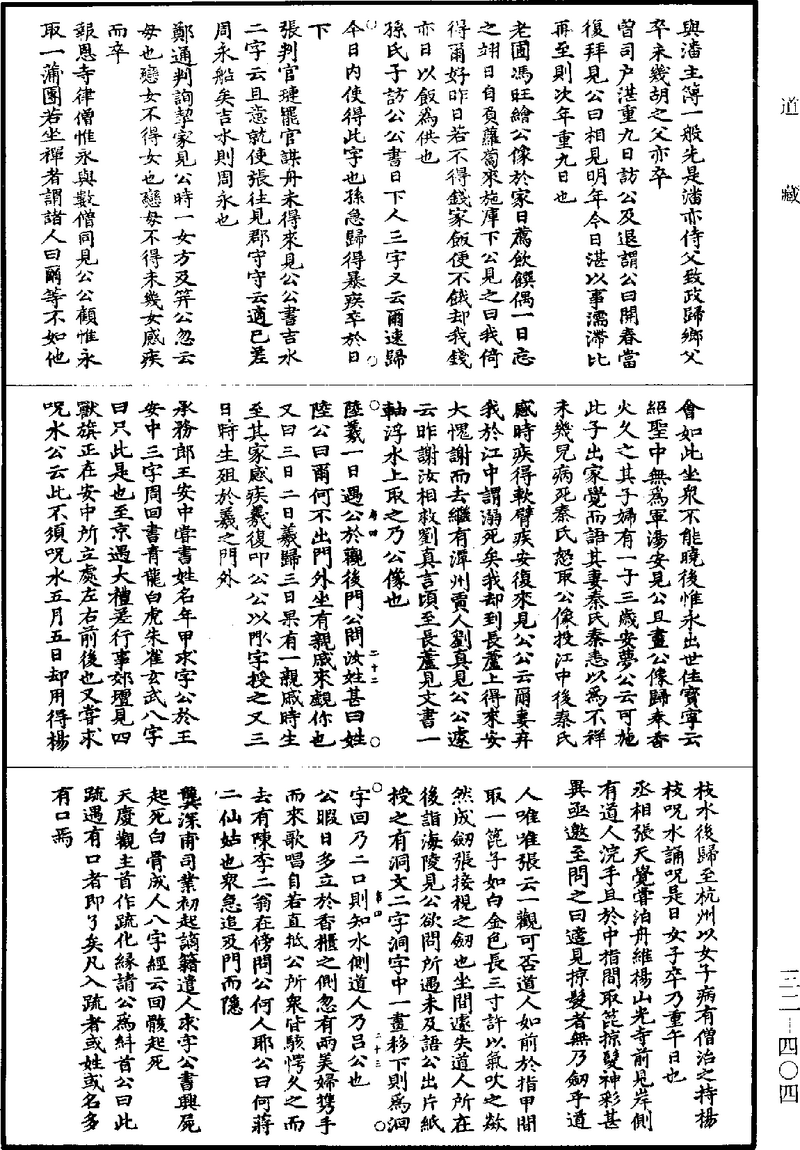 道藏
與潘主簿一般先是潘亦侍父致政歸鄉父
卒未幾胡之父亦卒
曾司户湛重九日訪公及退謂公曰開春當
復拜見公曰相見明年今日湛以事濡滯比
再至則次年重九日也
老圃馮旺繪公像於家日薦飲饌偶一日忘
之翊日自負蘿蔔來施庫下公見之曰我倚
得爾好昨日若不得錢家飯便不餓却我錢
亦日以飯為供也
孫氏子訪公公書曰下人三字又云爾速歸
今日内使得此字也孫急歸得暴疾卒於日
下
張判官璉罷官謀舟未得來見公公書吉水
二字云且意就使張往見郡守守云適已差
周永船矣吉水則周永也
鄭通判詢挈家見公時一女方及筓公忽云
母也戀女不得女也戀母不得未幾女感疾
而卒
報恩寺律僧惟永與數僧同見公公顧惟永
取一蒲團若坐禪者謂諸人曰爾等不如他
會如此坐衆不能曉後惟永出世住寶寧云
紹聖中無為軍湯安見公且畫公像歸奉香
火久之其子婦有一子三歲安夢公云可施
此子出家覺而語其妻秦氏秦恚以為不祥
未幾兒病死秦氏怒取公像投江中後秦氏
感時疾得軟臂疾安復來見公公云爾妻弃
我於江中謂溺死矣我却到長蘆上得來安
大愧謝而去繼有潭州賈人劉真見公公遽
云昨謝汝相救劉真言頃至長蘆見文書一
軸浮水上取之乃公像也
陸羲一日遇公於觀後門公問汝姓甚曰姓
陸公曰爾何不出門外坐有親戚來覷你也
又曰三日二日羲歸三日果有一親戚時生
至其家感疾羲復叩公公以 字授之又三
日時生殂於羲之門外
承務郎王安中嘗書姓名年甲求字公於王
安中三字周回書青龍白虎朱雀玄武八字
曰只此是也至京遇大禮差行事郊壇見四
獸旗正在安中所立處左右前後也又嘗求
呪水公云此不須呪水五月五日却用得楊
枝水後歸至杭州以女子病有僧治之持楊
枝呪水誦呪是日女子卒乃重午日也
丞相張天覺嘗泊舟維楊山光寺前見岸側
有道人浣手且於中指間取箆掠髮神彩甚
異亟邀至問之曰遠見掠髮者無乃劒乎道
人唯唯張云一觀可否道人如前於指甲間
取一箆子如白金色長三寸許以氣吹之欻
然成劒張接視之劒也坐間遽失道人所在
後詣海陵見公欲問所遇未及語公出片紙
授之有洞文二字洞字中一畫移下則為洄
字回乃二口則知水側道人乃吕公也
公暇日多立於香櫃之側忽有兩美婦携手
而來歌唱自若直抵公所衆皆駭愕久之而
去有陳李二翁在傍問公何人耶公曰何蔣
二仙姑也衆急追及門而隱
龔深甫司業初起謫籍遣人求字公書興屍
起死白骨成人八字經云回骸起死
天慶觀主首作疏化緣諸公為糾首公曰此
疏遇有口者即了矣凡入疏者或姓或名多
有口焉
二十二
二十三
三二－四〇四